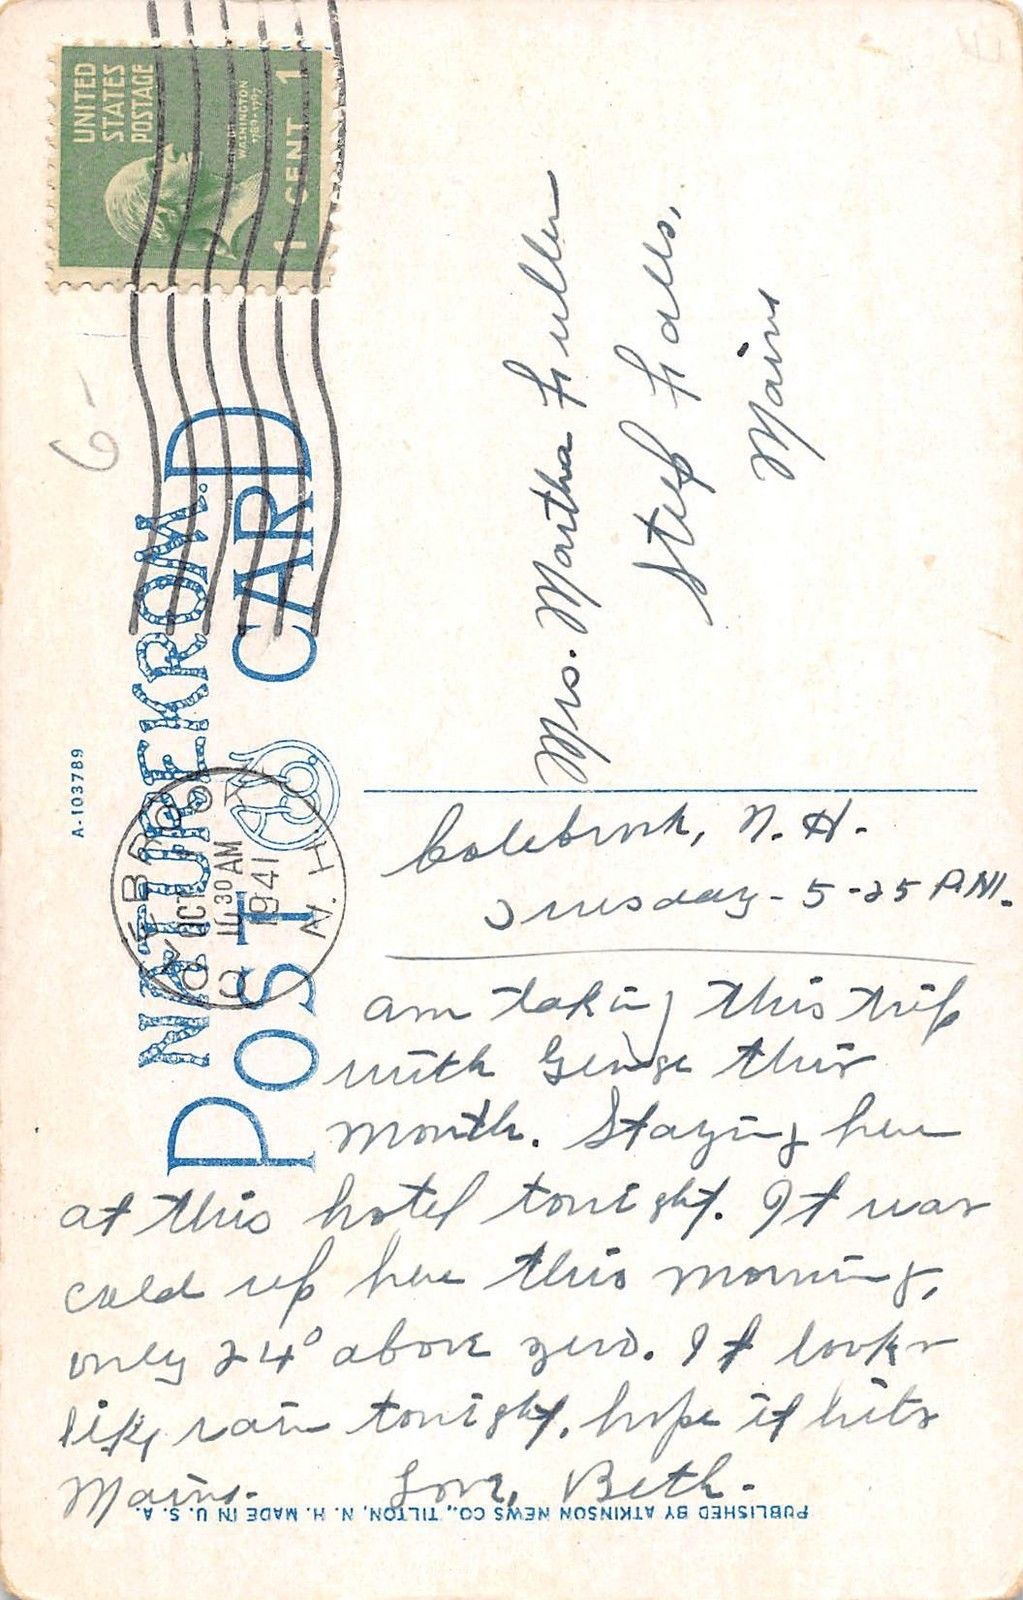 UNITED
STATES
POSTAGE
WASHINGTON
1789-1797
1 CENT 1
6-
NATUREKROM
POST CARD
A-103789
COLEBROOK
OCT
10 30 AM
1941
N. H.
Mrs. Martha Fuller
Steep Falls,
Maine
Colebrook, N. H.
Tuesday - 5-25 P.M.
am taking this trip
with George this
month. Staying here
at this hotel tonight. It was
cold up here this morning,
only 24° above zero. It looks
like rain tonight, hope it hits
Maine. Love, Beth.
PUBLISHED BY ATKINSON NEWS CO., TILTON, N. H. MADE IN U. S. A.